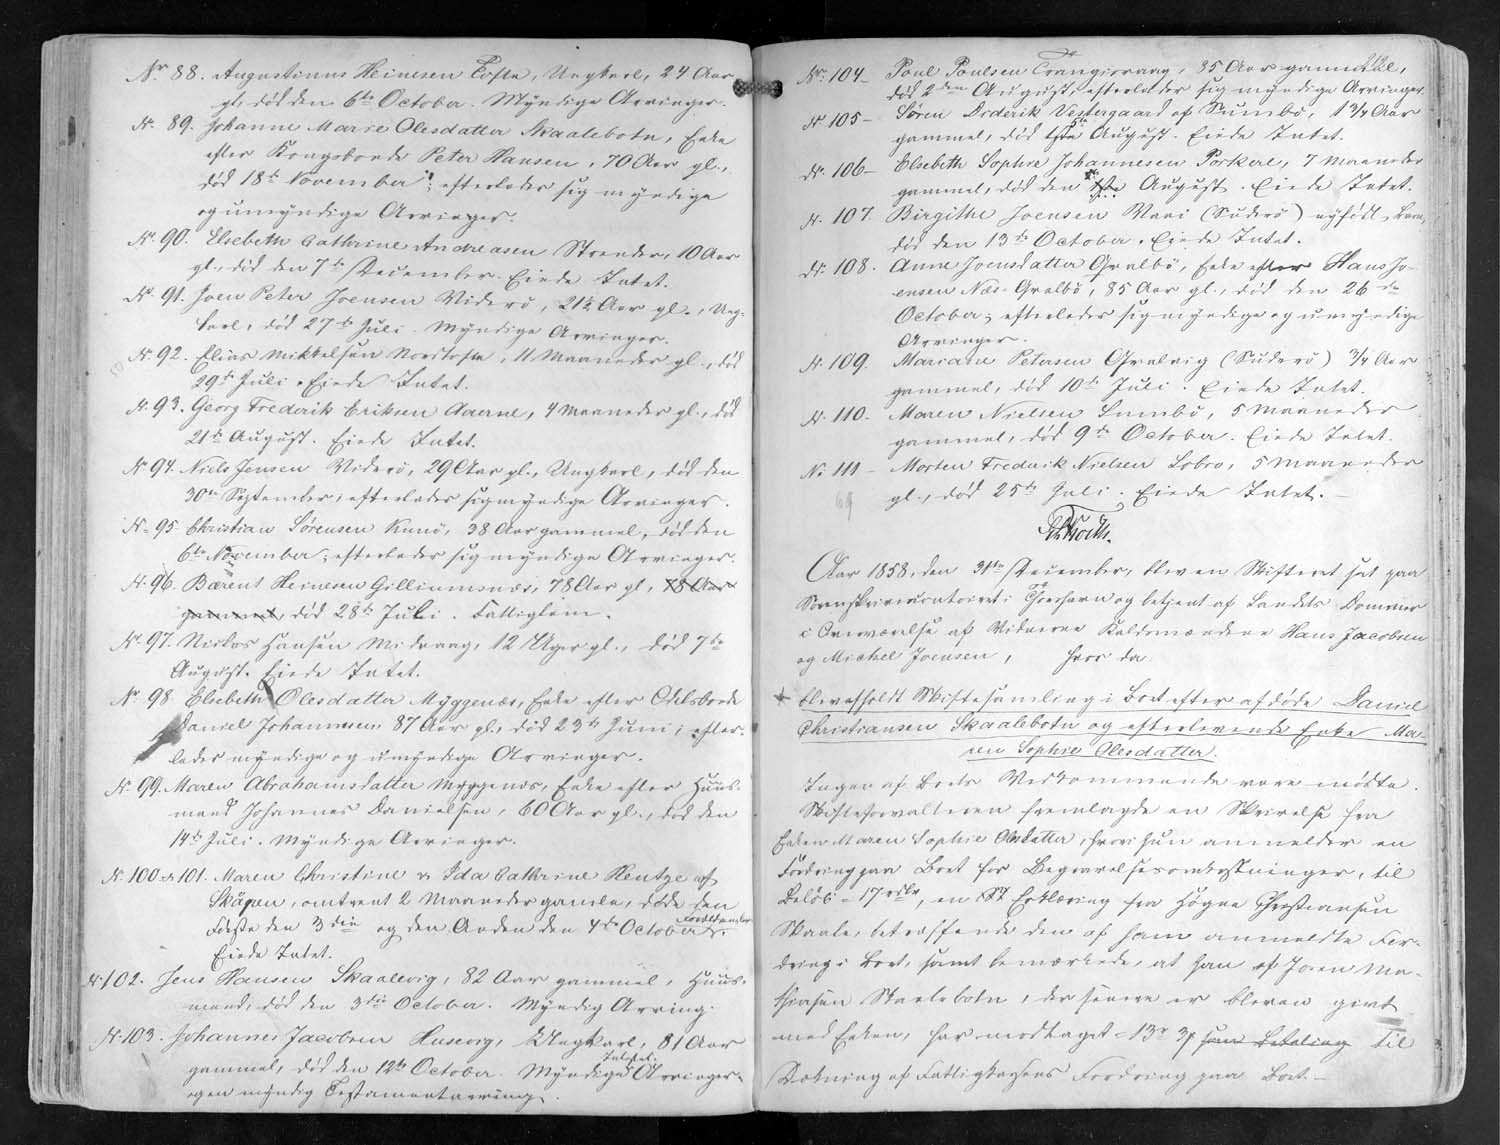 Nr 88. Augustinus Heinesen Tofte, Ungkarl, 24 Aar
gl., død den 6te October. Myndige Arvinger.
Nr. 89. Johanne Marie Olesdatter Skaalebotn, Enke
efter Kongsbonde Peter Hansen, 70 Aar gl.,
død 18de November; efterlader sig myndige
og umyndige Arvinger.
Nr. 90. Elsebeth Cathrine Andreasen Strender, 10 Aar
gl., død den 7de December. Eiede Intet.
Nr. 91. Joen Peter Joensen Viderø, 21½ Aar gl., Ung-
karl, død 27de Juli. Myndige Arvinger.
Nr. 92. Elias Mikkelsen Nordtofte, 11 Maaneder gl., død
29de Juli. Eiede Intet.
Nr. 93. Georg Frederik Eriksen Aaerne, 4 Maaneder gl., død
21de August. Eiede Intet.
Nr 94. Niels Jensen Viderø, 29 Aar gl., Ungkarl, død den
30te September; efterlader sig myndige Arvinger.
Nr 95. Christian Sørensen Kunø, 38 Aar gammel, død den
6te November; efterlader sig myndige Arvinger.
Nr. 96. Bærent Heinesen Gilliumsnæs, 78 Aar gl., 78 Aar
gammel, død 28de Juli. Fattiglem.
Nr 97. Niclas Hansen Midvaag, 12 Uger gl., død 7de
August. Eiede Intet.
Nr 98. Elsebeth Olesdatter Myggenæs, Enke efter Odelsbonde
Daniel Johannesen 87 Aar gl., død 23de Juni; efter-
lader myndige og umyndige Arvinger.
Nr. 99. Maren Abrahamsdatter Myggenæs, Enke efter Huus-
mand Johannes Danielsen, 60 Aar gl., død den
14de Juli. Myndige Arvinger.
Nr. 100 & 101. Maren Christine & Ida Cathrine Hentze af
Skåpen, omtrent 2 Maaneder gamle, døde den
Første den 3die og den Anden den 4de October
Eiede Intet.
Nr. 102. Jens Hansen Skaalevig, 82 Aar gammel, Huus-
mand, død den 3die October. Myndig Arving.
Nr. 103. Johannes Jacobsen Husevig, Ungkarl, 81 Aar
gammel, død den 12te October. Myndige Arvinger
og en myndig Testamentarving.
Nr. 104 – Poul Poulsen Trangisvaag, 85 Aar gammel,
død 2den August, efterlader sig myndige Arvinger
Nr 105 – Søren Diderik Vestergaard af Sumbø, 1¾ Aar
gammel, død August. Eiede Intet.
Nr. 106 – Elsebeth Sophie Johannesen Porkere, 7 Maaneder
gammel, død den August. Eiede Intet.
Nr. 107. Birgithe Joensen Waai (Suderø) nyfødt Barn,
død den 13de October. Eiede Intet.
Nr. 108. Anne Joensdatter Qvalbø, Enke efter Hans Jo-
ensen Næs Qvalbø, 85 Aar gl., død den 26de
October; efterlader sig myndige og umyndige
Arvinger.
Nr. 109. Mariane Petersen Qvalvig (Suderø) ¾ Aar
gammel, død 10de Juli. Eiede Intet.
Nr. 110. Maren Nielsen Sumbø, 5 Maaneder
gammel, død 9de October. Eiede Intet.
No 111 – Morten Frederik Nielsen Lobro, 5 Maaneder
gl., død 25de Juli. Eiede Intet. –
69
Aar 1858, den 31te December, blev en Skifteret sat paa
Sorenskrivercontoiret i Thorshavn og betjent af Landets Dommer
i Overværelse af Vidnerne Kaldsmændene Hans Jacobsen
og Michel Joensen, hvor da
blev afholdt Skiftesamling i Boet efter afdøde Daniel
Christiansen Skaalebotn og efterlevende Enke Ma-
ren Sophie Olesdatter.
Ingen af Boets Vedkommende vare mødte.
Skifteforvalteren fremlagde en Skrivelse fra
Enken Maren Sophie Olesdatter, hvori hun anmelder en
Fordring paa Boet for Begravelsesomkostninger, til
Beløb – 17 rdlr, en Erklæring fra Høgne Christiansen
Skaale, betræffende den af ham anmeldte For-
dring i Boet, samt bemærkede, at han af Joen Ma-
thiasen Skaalebotn, der senere er bleven givt
med Enken, har modtaget – 13 r 3 som Betaling til
Dækning af Fattigkassens Fordring paa Boet. –